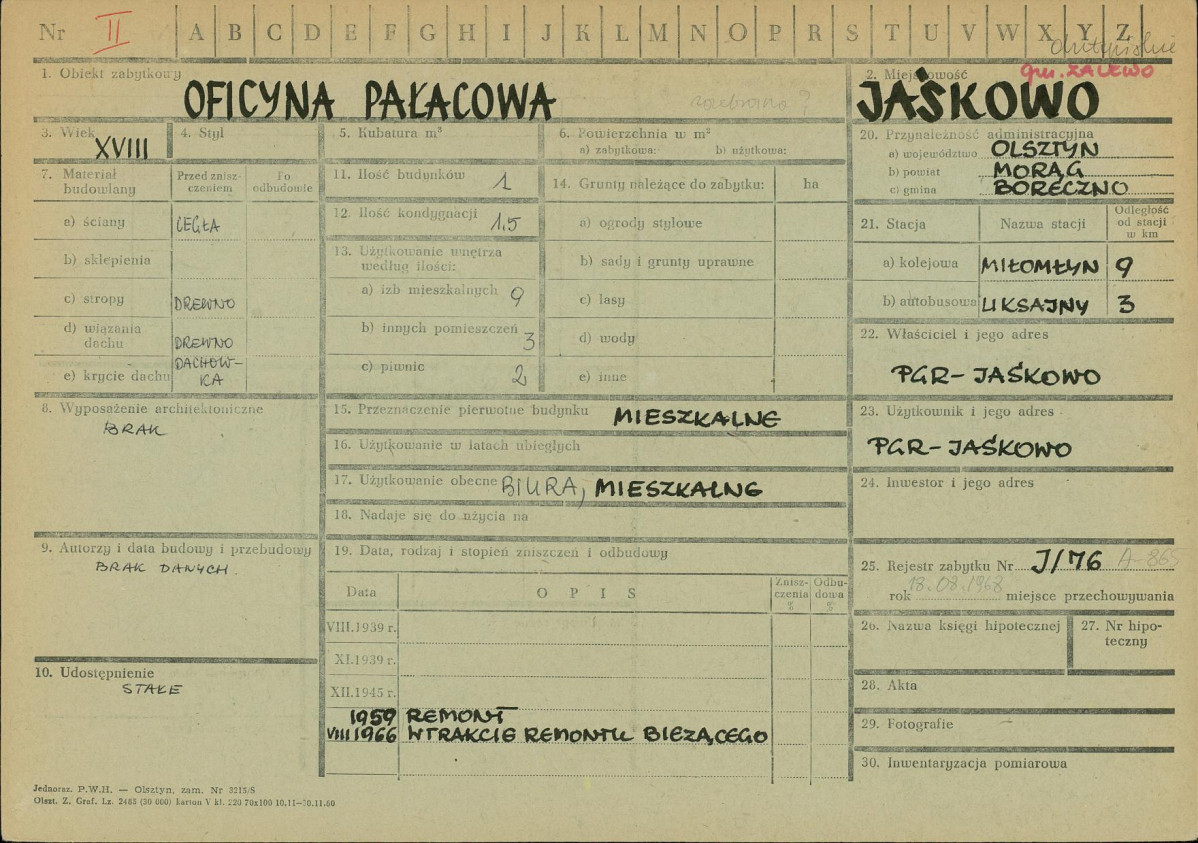 Nr II A B C D E F G H I J K L M N O P R S T U V W X Y Z
olsztyńskie
gm. ZALEWO
1. Obiekt zabytkowy
OFICYNA PAŁACOWA
2. Miejscowość
JAŚKOWO
3. Wiek
XVIII
4. Styl
5. Kubatura m³
6. Powierzchnia w m²
a) zabytkowa: b) użytkowa:
7. Materiał budowlany
Przed znisz-
czeniem
Po
odbudowie
a) ściany CEGŁA
b) sklepienia
c) stropy DREWNO
d) wiązania
dachu DREWNO
e) krycie dachu DACHÓW-
KA
8. Wyposażenie architektoniczne
BRAK
9. Autorzy i data budowy i przebudowy
BRAK DANYCH.
10. Udostępnienie
STAŁE
11. Ilość budynków 1
12. Ilość kondygnacji 1,5
13. Użytkowanie wnętrza
według ilości:
a) izb mieszkalnych 9
b) innych pomieszczeń 3
c) piwnic 2
14. Grunty należące do zabytku: ha
a) ogrody stylowe
b) sady i grunty uprawne
c) lasy
d) wody
e) inne
15. Przeznaczenie pierwotne budynku MIESZKALNE
16. Użytkowanie w latach ubiegłych
17. Użytkowanie obecne BIURA, MIESZKALNE
18. Nadaje się do użycia na
19. Data, rodzaj i stopień zniszczeń i odbudowy
Data OPIS
Znisz-
czenia
%
Odbu-
dowa
%
VIII.1939 r.
XI.1939 r.
XII.1945 r.
1959 REMONT
VIII 1966 W TRAKCIE REMONTU BIEŻĄCEGO
20. Przynależność administracyjna
a) województwo OLSZTYN
b) powiat MORĄG
c) gmina BORECZNO
21. Stacja Nazwa stacji
Odległość
od stacji
w km
a) kolejowa MIŁOMŁYN 9
b) autobusowa UKSAJNY 3
22. Właściciel i jego adres
PGR-JAŚKOWO
23. Użytkownik i jego adres
PGR-JAŚKOWO
24. Inwestor i jego adres
25. Rejestr zabytku Nr J/76 A-865
rok 18.08.1968 miejsce przechowywania
26. Nazwa księgi hipotecznej
27. Nr hipo-
teczny
28. Akta
29. Fotografie
30. Inwentaryzacja pomiarowa
Jednoraz. P.W.H. — Olsztyn, zam. Nr 3215/S
Olszt. Z. Graf. Lz. 2485 (30 000) karton V kl. 220 70x100 10.11—30.11.60